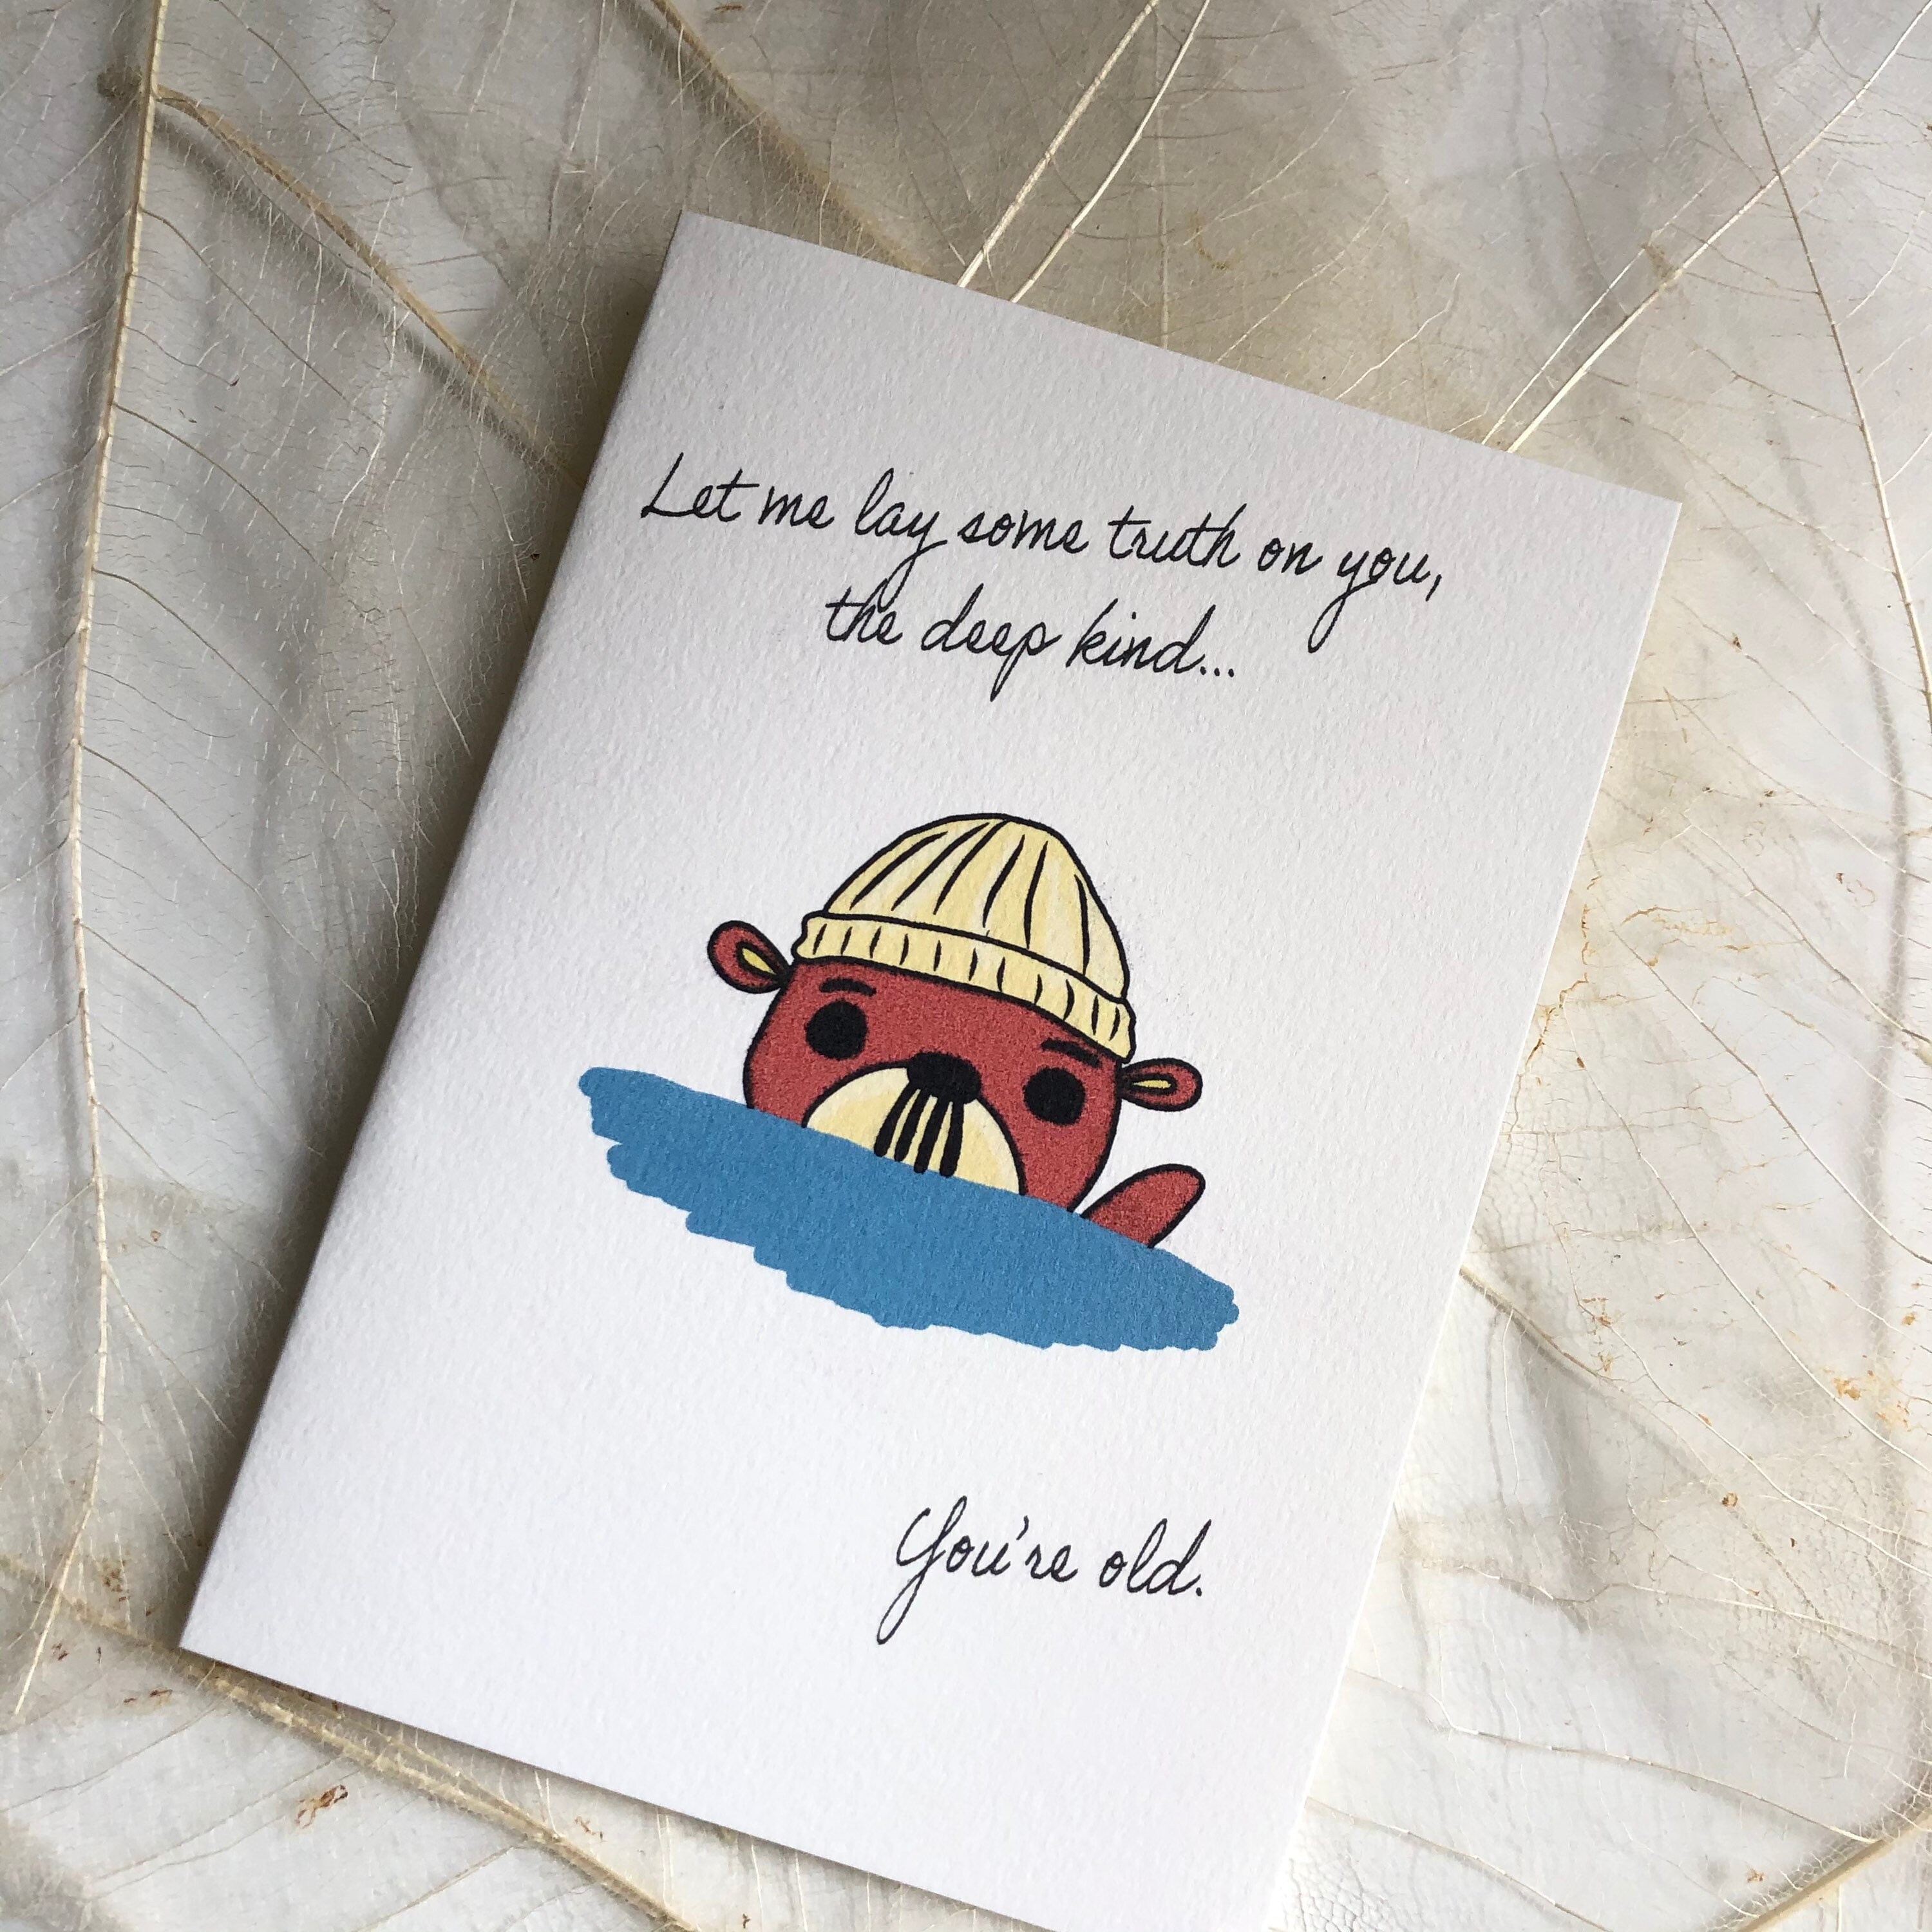 Let me lay some truth on you,
the deep kind...
You're old.